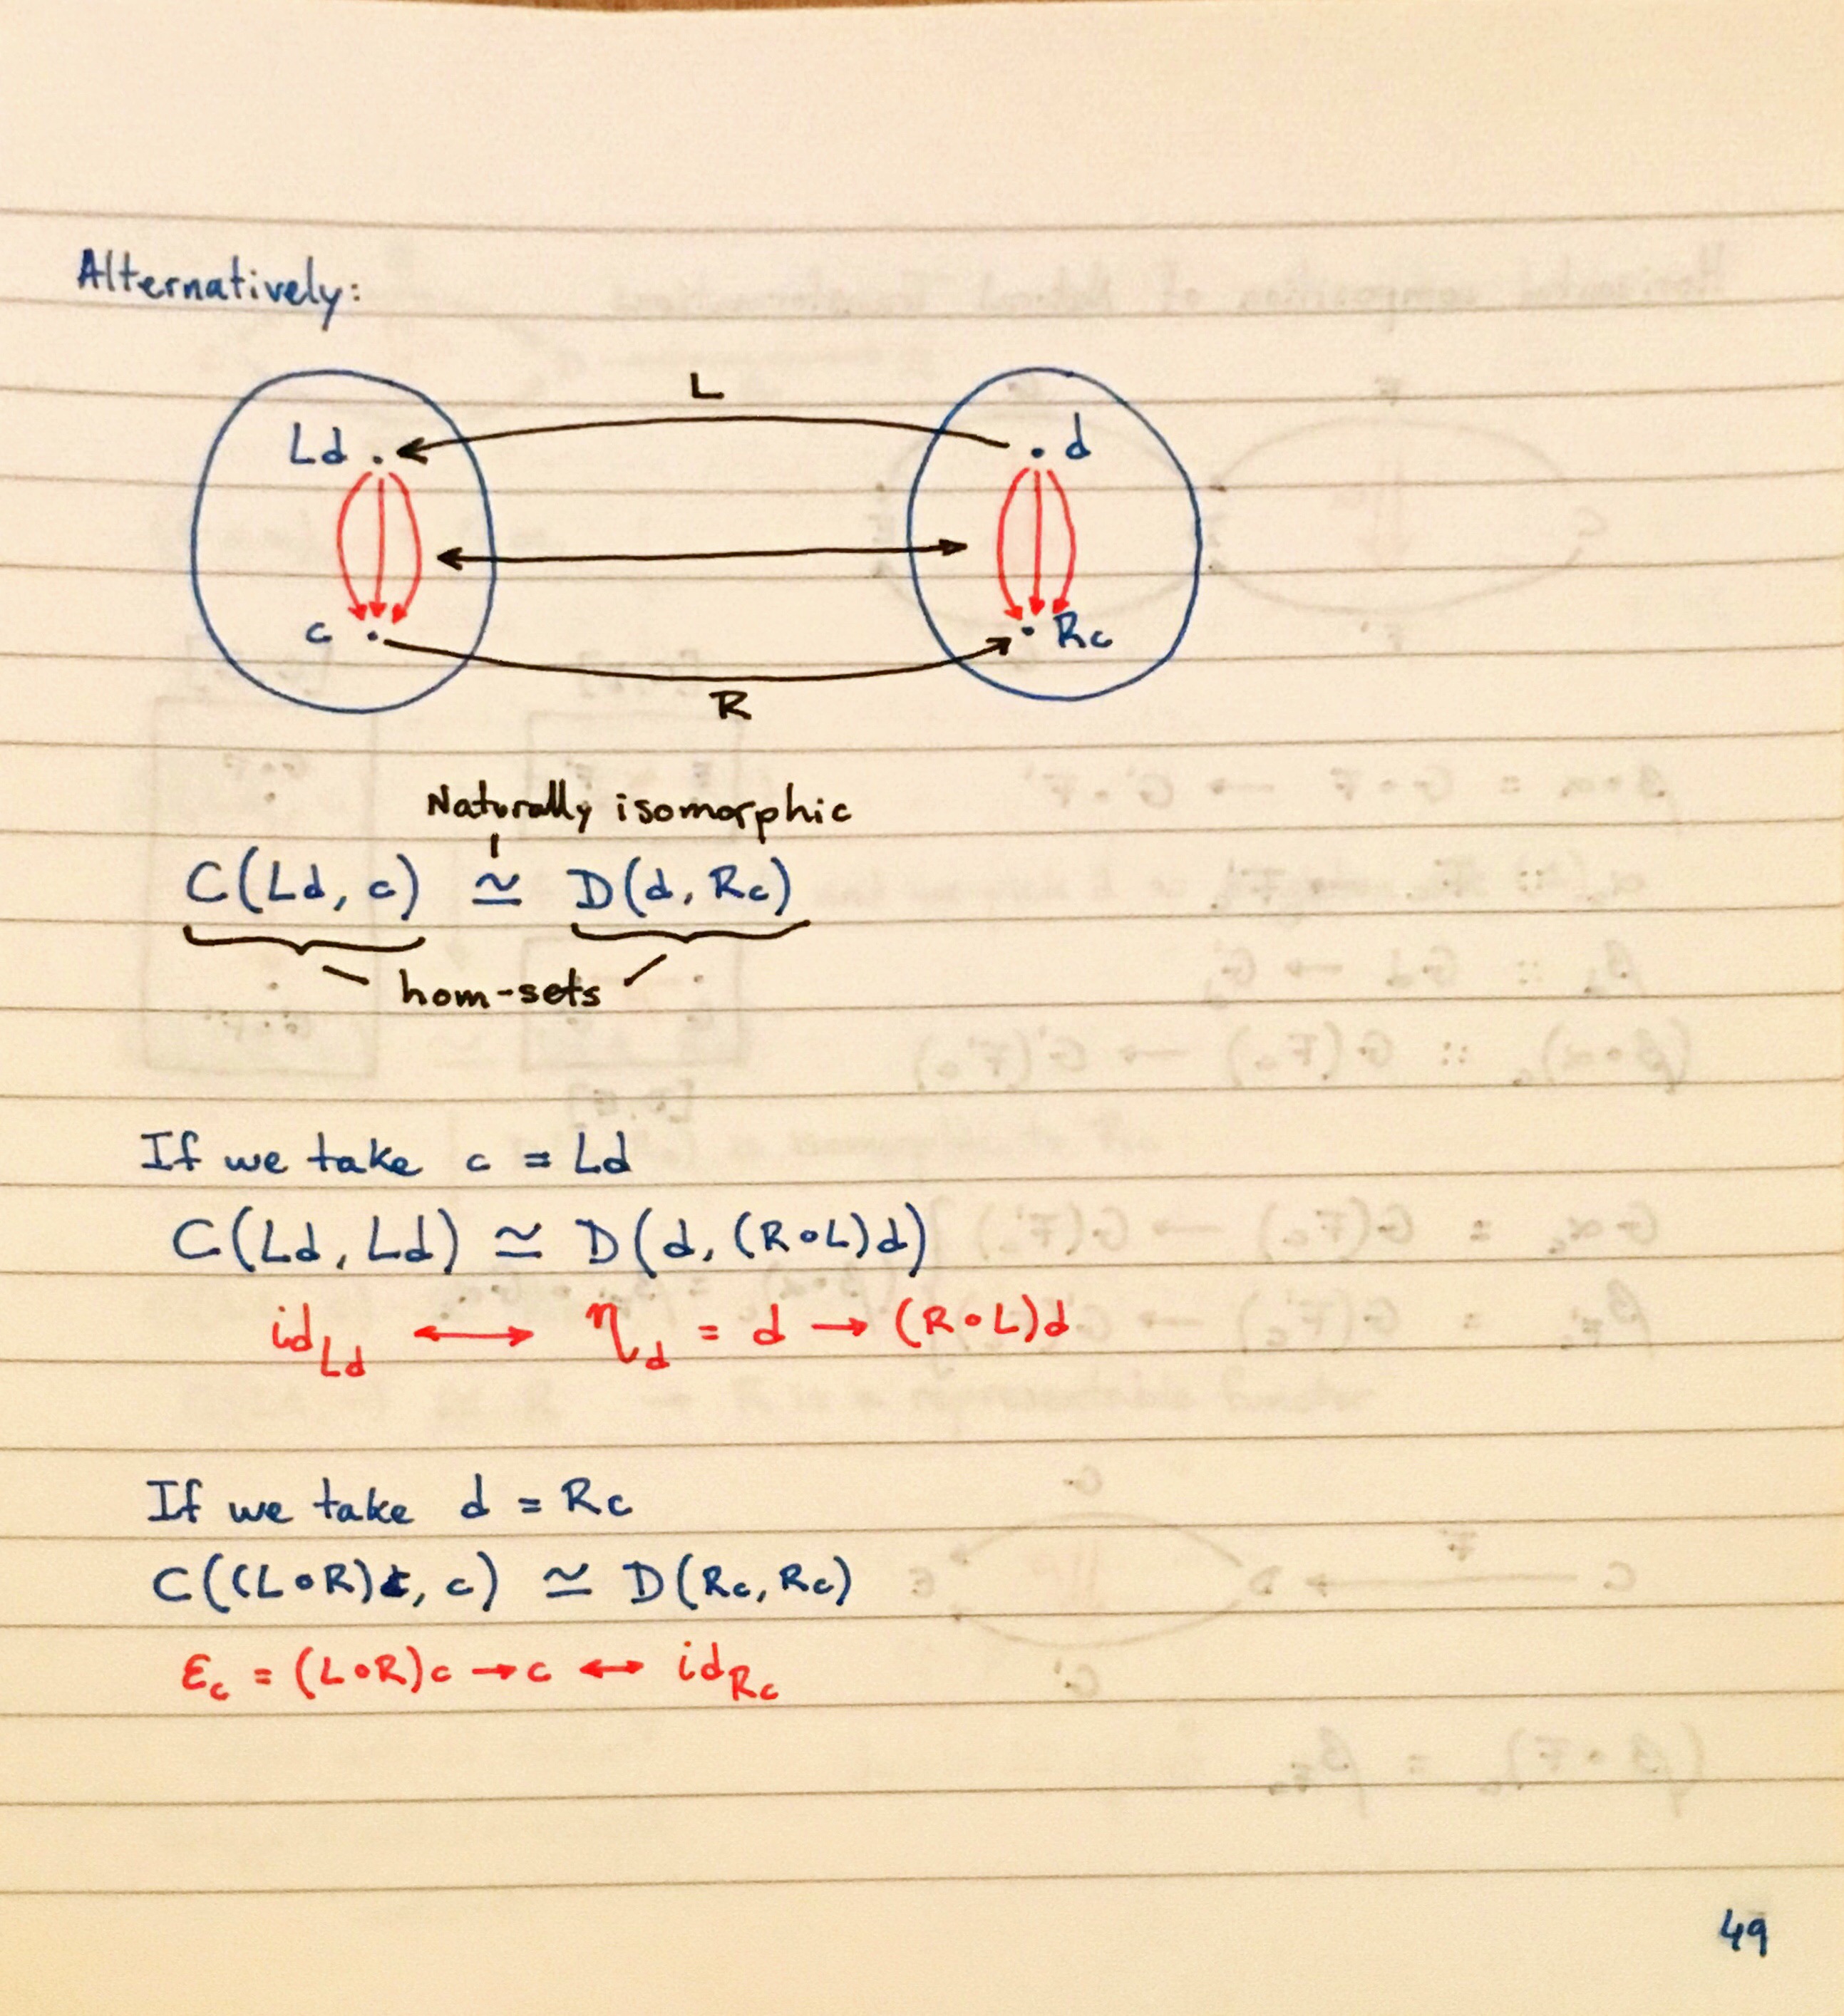 Alternatively:
L
Ld . . d
c . . Rc
R
Naturally isomorphic
C(Ld, c) ≃ D(d, Rc)
hom-sets
If we take c = Ld
C(Ld, Ld) ≃ D(d, (R∘L)d)
id_Ld ⟷ η_d = d → (R∘L)d
If we take d = Rc
C((L∘R)c, c) ≃ D(Rc, Rc)
ε_c = (L∘R)c → c ↔ id_Rc
49